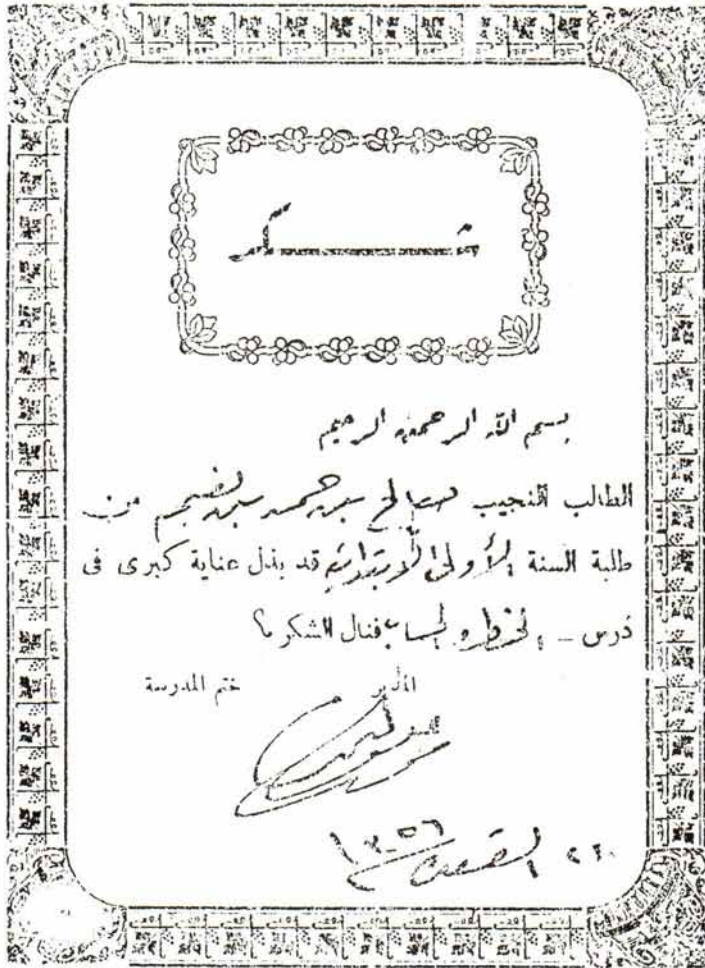 شكر
بسم الله الرحمن الرحيم
الطالب النجيب صالح بن حمد بن من
طلبة السنة الأولى الابتدائية قد بذل عناية كبرى فى
درس ـ الخط والحساب فنال الشكر
المدير ختم المدرسة
القعدة